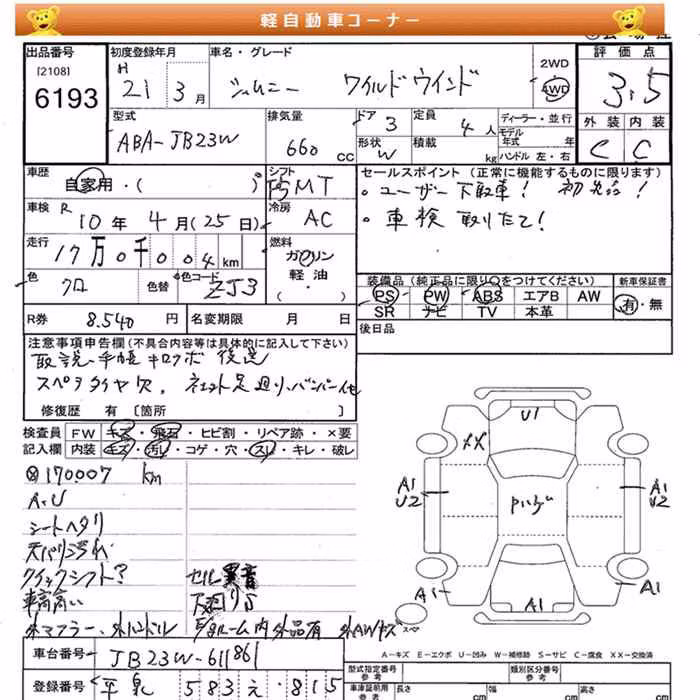 軽自動車コーナー
出品番号
[2108]
6193
初度登録年月
H
21 3月
車名・グレード
ジムニー ワイルドウインド
2WD
4WD
評価点
3.5
外装 内装
C C
型式
ABA-JB23W
排気量
660 cc
ドア 3
形状 W
定員
4人
積載
kg
ディーラー・並行
モデル
年式 年
ハンドル 左・右
車歴
自家用・( )
シフト
MT
セールスポイント (正常に機能するものに限ります)
・ユーザー下取車!
・車検 取りたて!
車検 R
10年 4月(25日)
冷房
AC
走行
17万0千004km
燃料
ガソリン
軽油
・( )
色
クロ
色替
色コード
ZJ3
装備品(純正品に限り○をつけてください)
PS PW ABS エアB AW
SR ナビ TV 本革
新車保証書
有・無
R券 8.540 円
名変期限 月 日
後日品
注意事項申告欄(不具合内容等は具体的に記入して下さい)
取説・手帳 キロクボ 後送
スペアタイヤ欠
修復歴 有 〔箇所 〕
検査員
記入欄
FW キズ・飛石・ヒビ割・リペア跡・×要
内装 キズ・汚れ・コゲ・穴・スレ・キレ・破レ
170007 km
A.U
シートヘタリ
天バリ汚れ
クイックシフト?
セル異音
車高高い
下廻りS
外マフラー、外ハンドル
外品有 外AWキズ
U1
XX
A1
U2
A1
U2
A1
A1
A1
スペア
A-キズ E-エクボ U-凹み W-補修跡 S-サビ C-腐食 XX-交換済
車台番号 JB23W-611861
登録番号
583 え 815
型式指定番号
参考
類別区分番号
参考
車庫証明用
参考
長さ
cm
幅
cm
高さ
cm